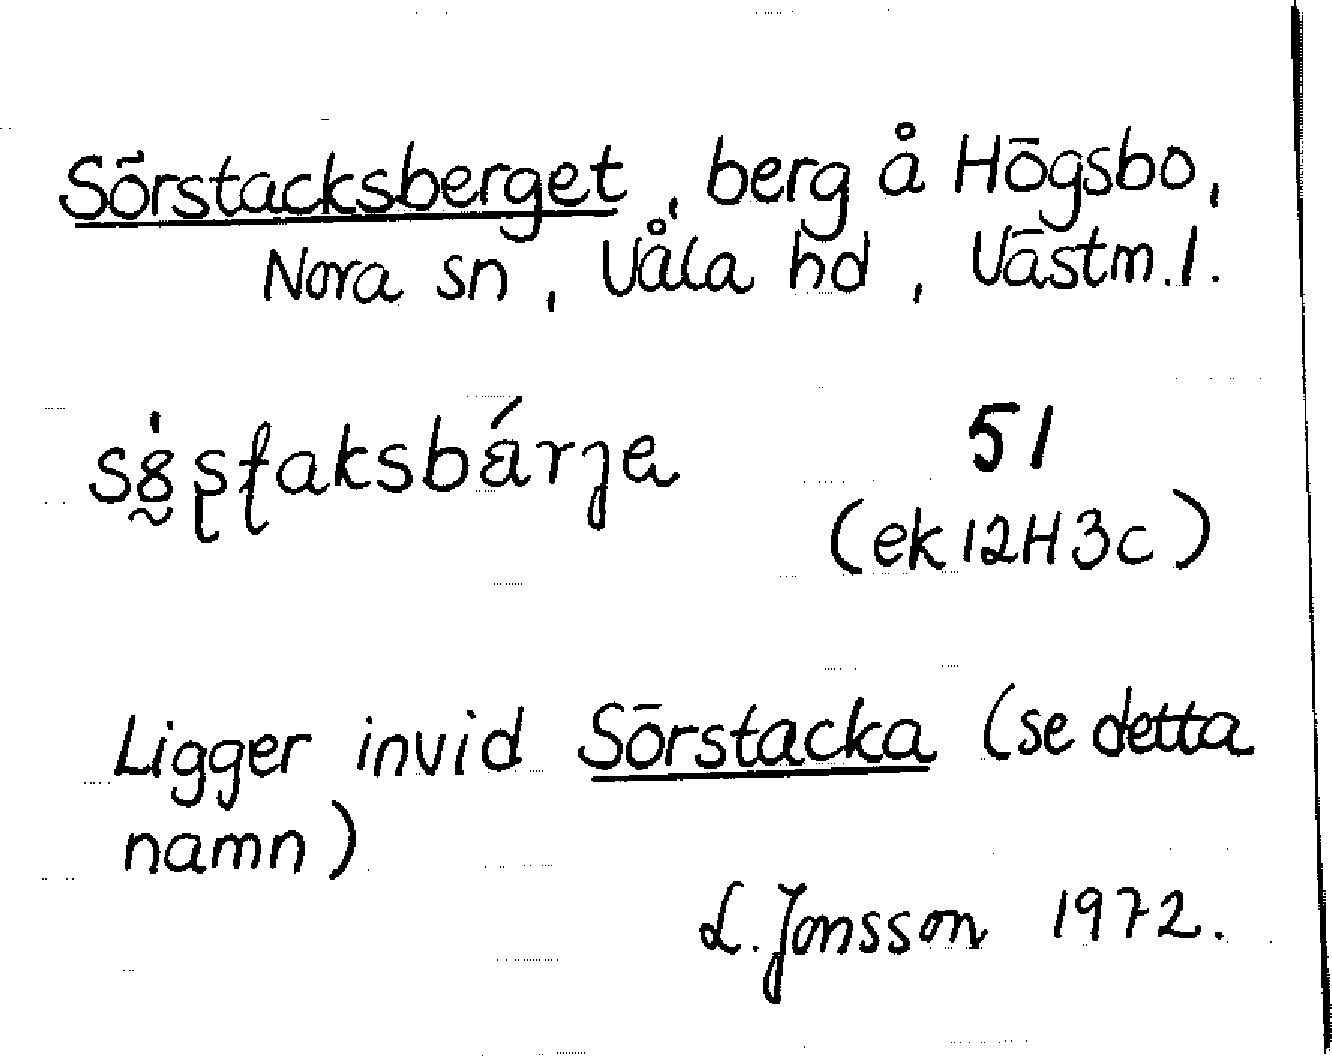 Sörstacksberget, berg å Högsbo,
Nora sn, Våla hd, Västm.l.
51
(ek 12H3c)
Ligger invid Sörstacka (se detta
namn)
L. Jonsson 1972.